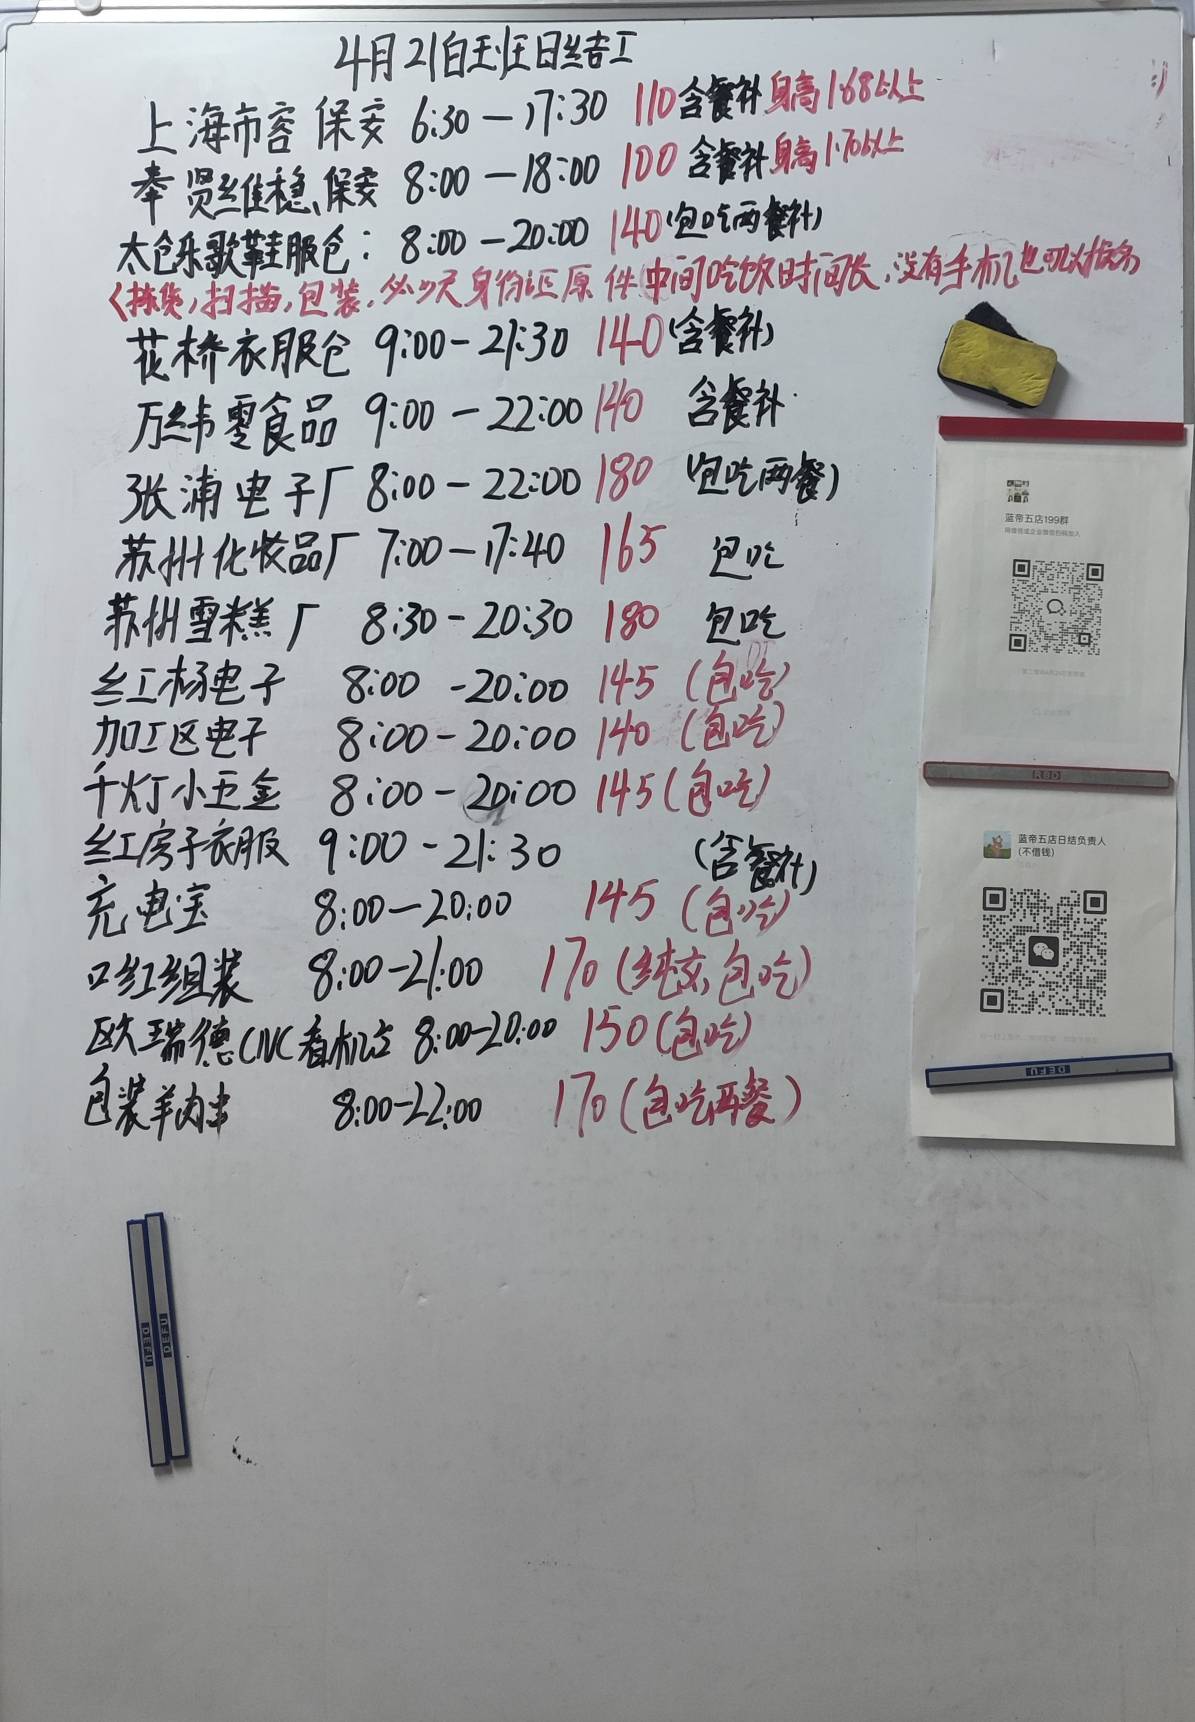 4月21白班日结工
上海市容 保安 6:30—17:30 110含餐补身高1.68以上
奉贤维稳、保安 8:00—18:00 100 含餐补身高1.70以上
太仓乐歌鞋服仓: 8:00—20:00 140(包吃两餐补)
(拣货,扫描,包装,必须 身份证原件 中间吃饭时间长,没有手机也可以报名
花桥衣服仓 9:00-21:30 140(含餐补)
万纬零食品 9:00—22:00 140 含餐补
张浦电子厂 8:00—22:00 180 (包吃两餐)
苏州化妆品厂 7:00—17:40 165 包吃
苏州雪糕厂 8:30-20:30 180 包吃
红杨电子 8:00-20:00 145(包吃)
加工区电子 8:00-20:00 140(包吃)
千灯小五金 8:00-20:00 145(包吃)
红房子衣服 9:00-21:30 (含餐补)
充电宝 8:00—20:00 145(包吃)
口红组装 8:00-21:00 170(纯女,包吃)
欧瑞德CNC看机台 8:00-20:00 150(包吃)
包装羊肉串 8:00-22:00 170(包吃两餐)
蓝帝五店199群
RBD
蓝帝五店日结负责人
(不借钱)
DEFU
DEFU
DEFU